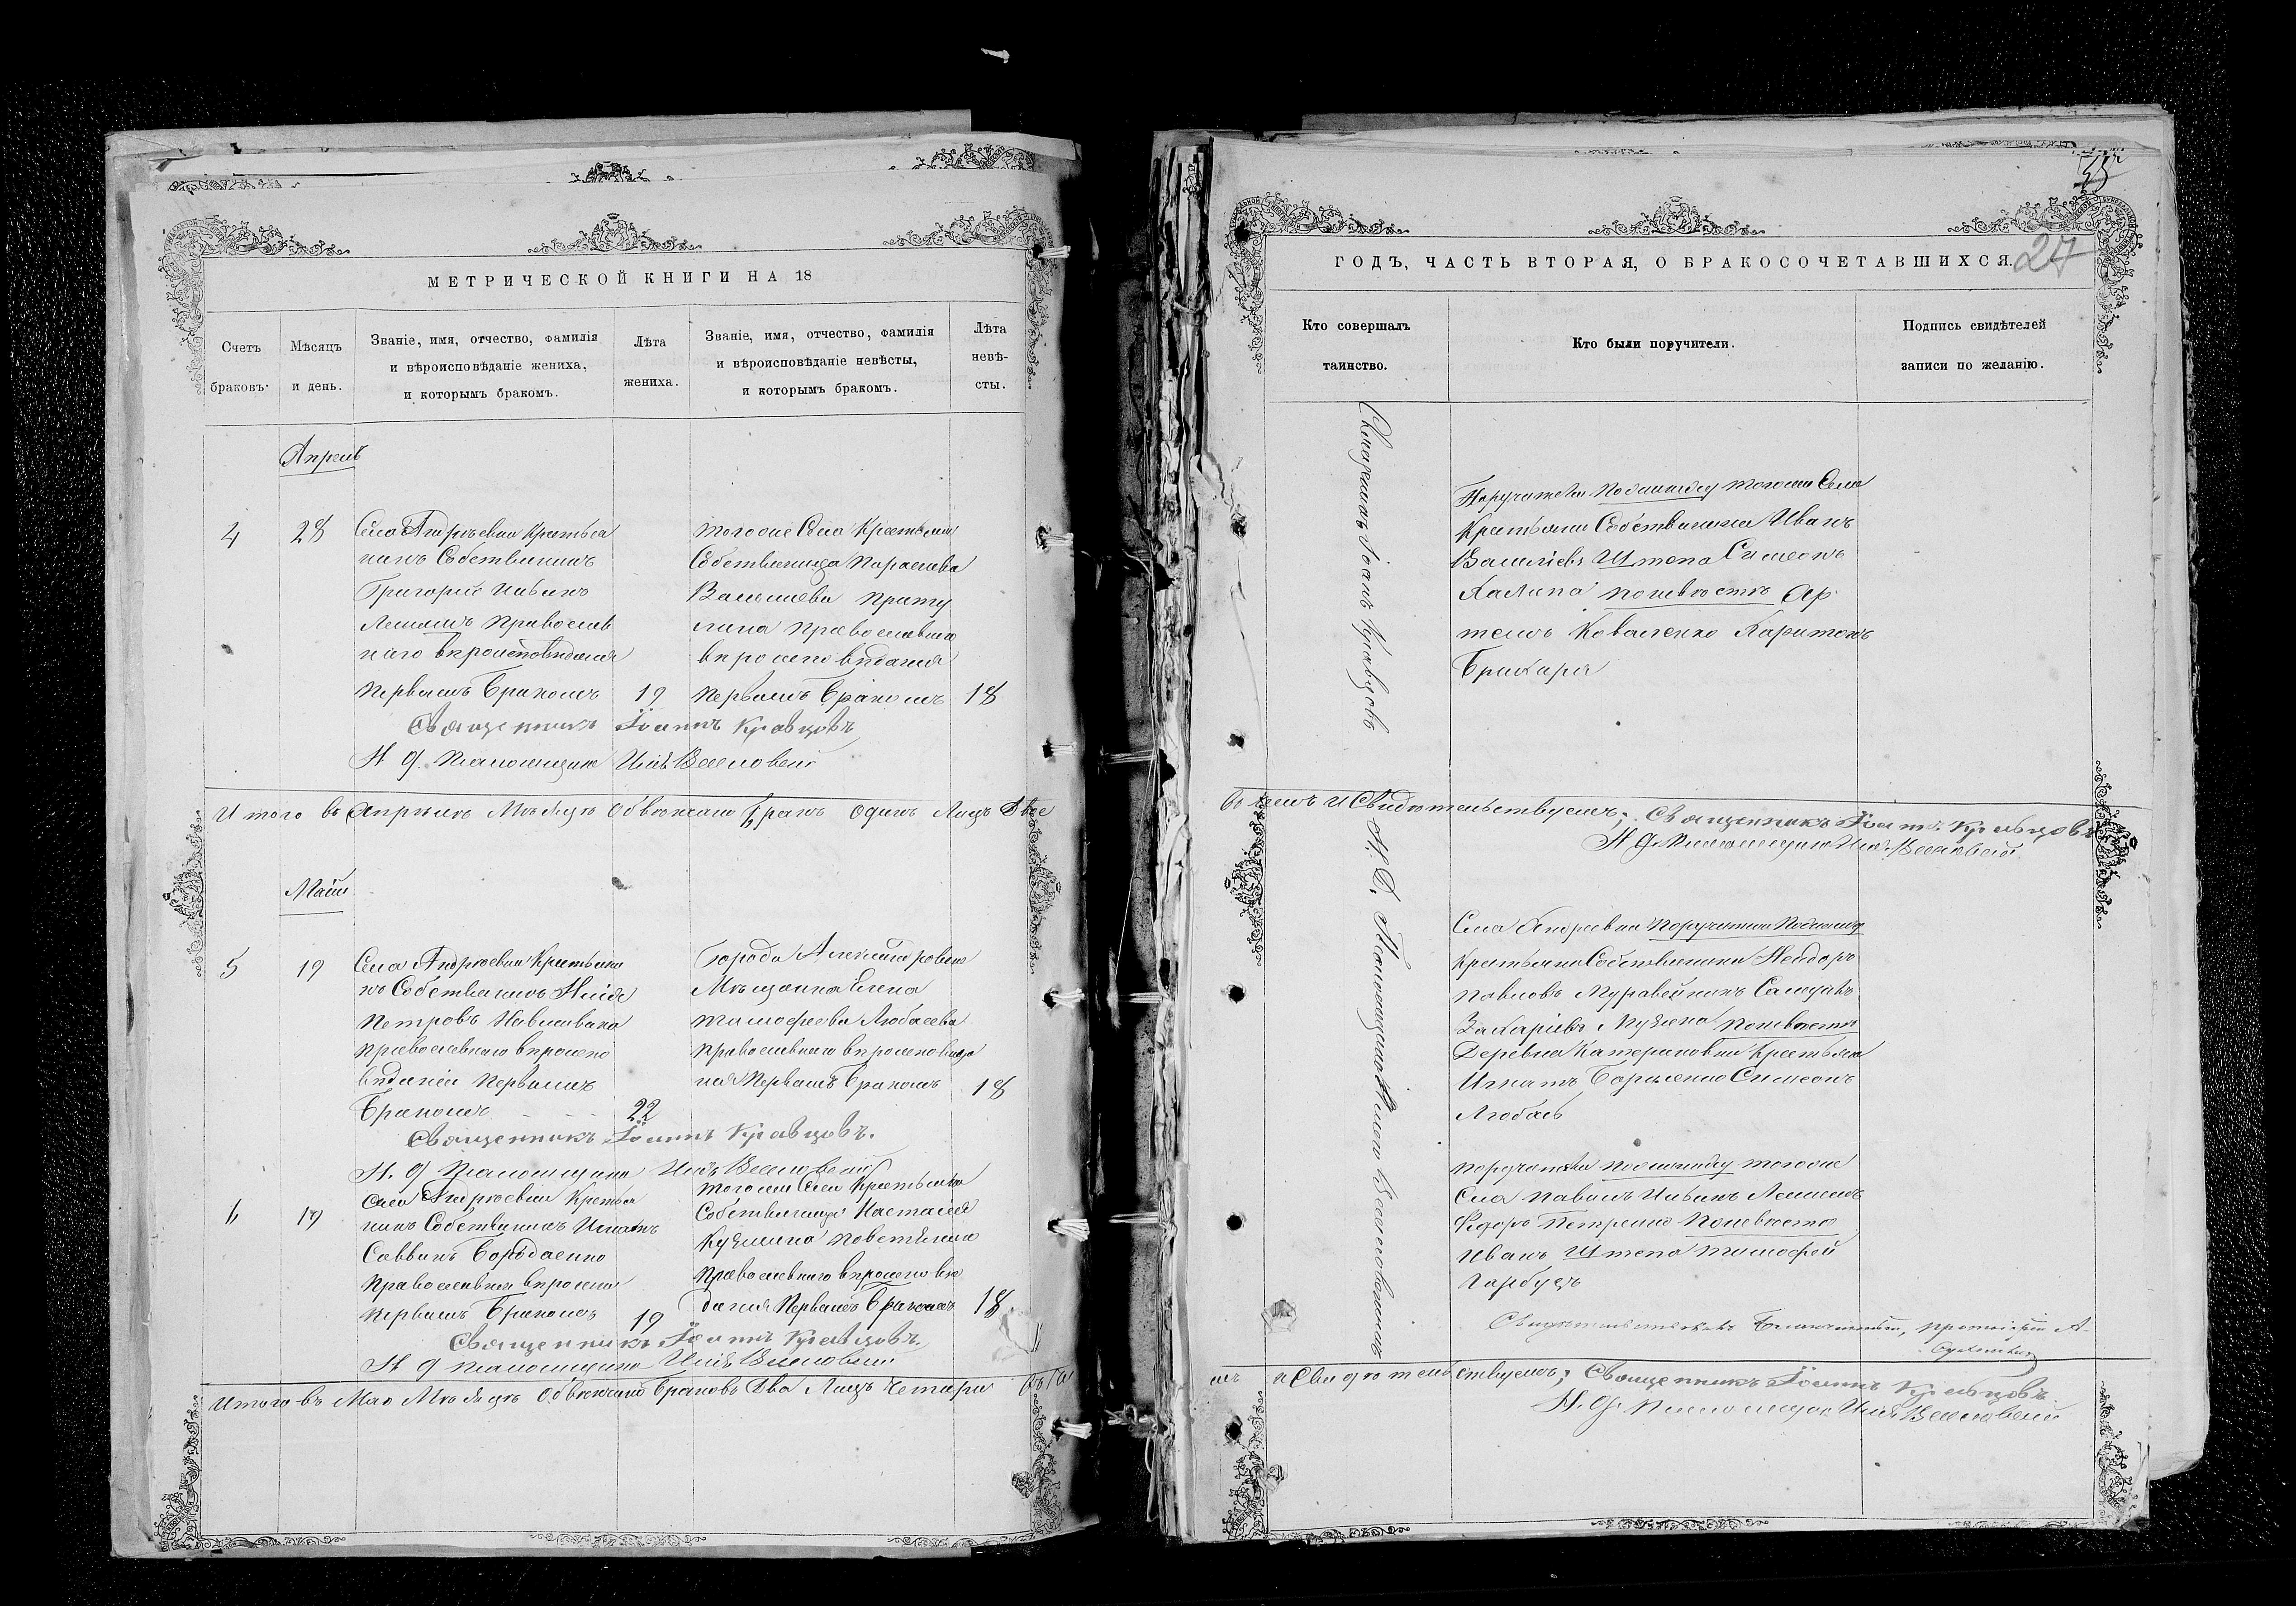 МЕТРИЧЕСКОЙ КНИГИ НА 18
Счетъ браковъ.
Мѣсяцъ и день.
Званіе, имя, отчество, фамилія
и вѣроисповѣданіе жениха,
и которымъ бракомъ.
Лѣта
жениха.
Званіе, имя, отчество, фамилія
и вѣроисповѣданіе невѣсты,
и которымъ бракомъ.
Лѣта
невѣ-
сты.
Апрель
4
28
Села Андрѣевки Крестья
нинъ Собственникъ
Григорій Ивановъ
Лемешъ Православ
наго вѣроисповѣданія
Первымъ Бракомъ
19
тогоже Села Крестьянка
Собственница Параскева
православнаго
вѣроисповѣданія
Первымъ Бракомъ
18
Священникъ Іоаннъ Кравцовъ
И д. Псаломщика
Итого въ Апрѣлѣ Мѣсяцѣ Обвѣнчано Бракъ Одинъ Лицъ Двое
Маій
5
19
Села Андрѣевки Крестьяни
нъ Собственникъ Илія
Петровъ
православнаго вѣроиспо
вѣданія Первымъ
Бракомъ
22
Города Александровска
Мѣщанка Елена
тимофеева Любасева
православнаго вѣроисповѣда
нія Первымъ Бракомъ
18
Священникъ Іоаннъ Кравцовъ.
И. д Псаломщика
6
19
Села Андрѣевки Крестья
нинъ Собственникъ Игнатъ
Саввинъ Бородаенко
православнаго
Первымъ Бракомъ
19
тогоже Села Крестьянка
Собственница Настасія
Кузьмина
Православнаго вѣроисповѣ
данія Первымъ Бракомъ
18
Священникъ Іоаннъ Кравцовъ.
И д Псаломщика
Итого въ Маѣ Мѣсяцѣ Обвѣнчано Браковъ Два Лицъ Четыри
27
ГОДЪ, ЧАСТЬ ВТОРАЯ, О БРАКОСОЧЕТАВШИХСЯ.
Кто совершалъ
таинство.
Кто были поручители.
Подпись свидѣтелей
записи по желанію.
Священникъ Іоаннъ Кравцовъ
И. Д. Псаломщика
Поручители По жениху тогоже Села
Крестьяне Собственники Иванъ
Васильевъ Штепа Симеонъ
Халипа по невѣстѣ Ар
темъ Коваленко Харитонъ
свидѣтельствуемъ; Священникъ Іоаннъ Кравцовъ
И д. Псаломщика
Села Андреевки Поручители По жениху
Крестьяне Собственники
Павловъ Муравейникъ
Захаріевъ по невѣстѣ
Деревни Катериновки Крестьяне
Игнатъ Симеонъ
Любась
поручители по жениху тогоже
Села Павелъ Ивановъ Лемешъ
Федоръ Петренко По невѣстѣ
Иванъ Штепа тимофей
Гарбузъ
свидѣтельствуемъ; Священникъ Іоаннъ Кравцовъ.
И. д. Псаломщика